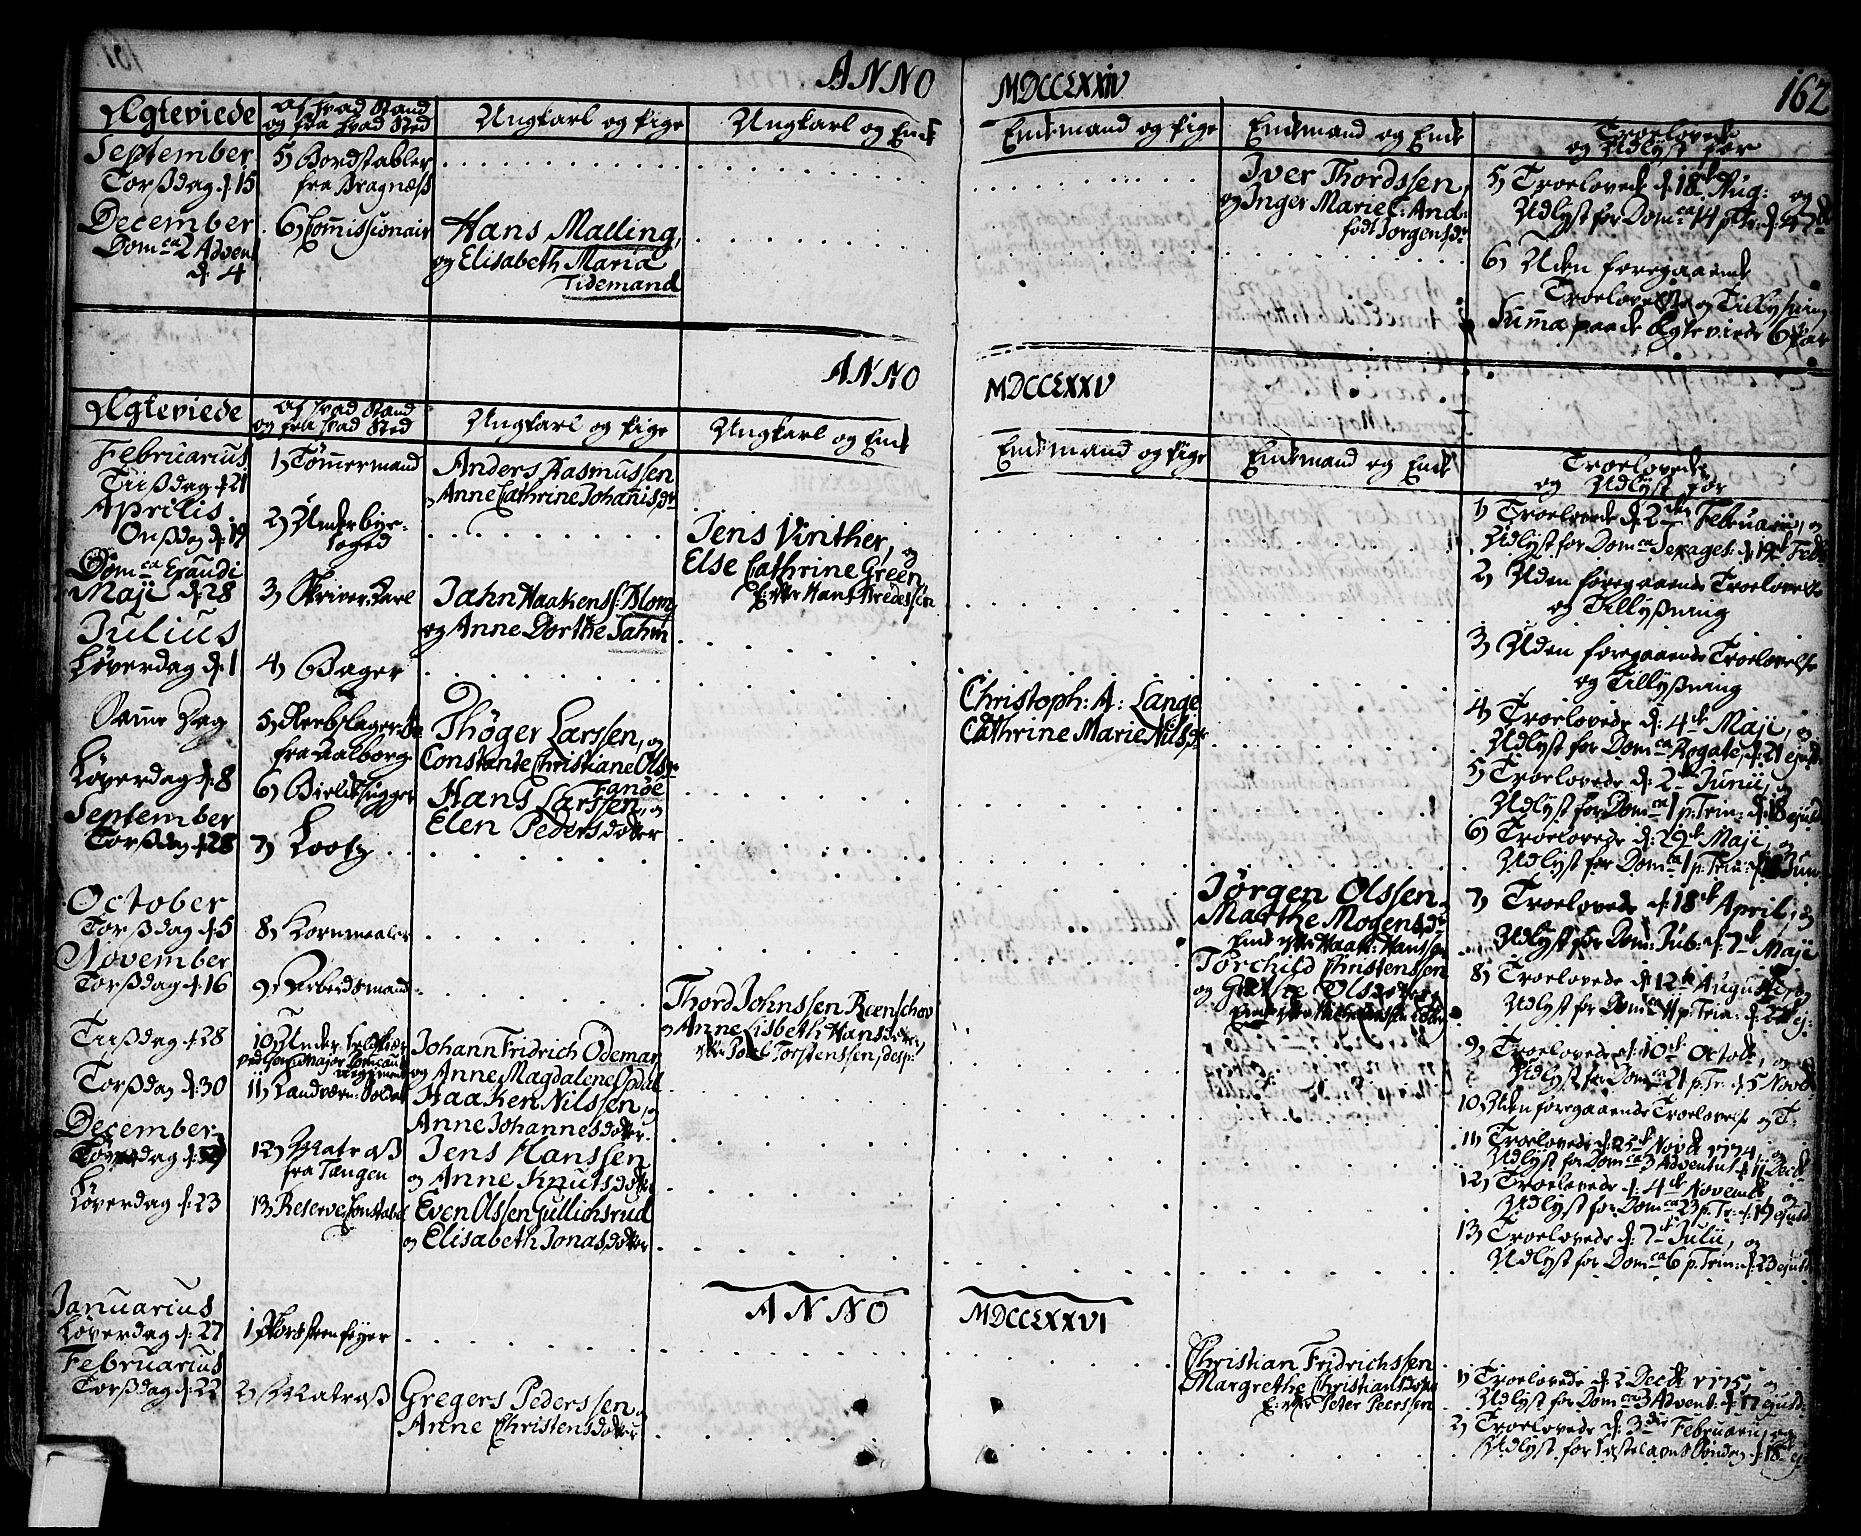 ANNO MDCCLXXIV
162
Ægteviede
af hvad Stand
og fra hvad Sted
Ungkarl og Pige
Ungkarl og Enke
Enkemand og Pige
Enkemand og Enke
Troelovede
og Udlyst for
September
Torsdag d: 15
5) Bordstabler
fra Bragnæss
Iver Thordssen,
og Inger Marie C: And:
født Jørgensdr
5) Troelovede d: 18de Aug: og
Udlyst for Domca 14 p. Tr: d: 4
December
Domca 2 Advent
d: 4
6) Commissionair
Hans Malling,
og Elisabeth Maria
Tidemand
6) Uden foregaaende
Troelovelse og Tillysning
Summa paa de Ægteviede 6 Par
ANNO MDCCLXXV
Ægteviede
af hvad Stand
og fra hvad Sted
Ungkarl og Pige
Ungkarl og Enke
Enkemand og Pige
Enkemand og Enke
Troelovede
og Udlyst for
Februarius
Tiisdag d: 21
1) Tømmermand
Anders Rasmussen
Anne Cathrine Johanisdr
1) Troelovede d: 2den Februarii, og
Udlyst for Domca Sexages: d: 19de Feb
Aprilis
Onsdag d: 19
2) Underbye-
foged
Jens Vinther, og
Else Cathrine Green
E: efter Hans Bredessen
2) Uden foregaaende Troelovelse
og Tillysning
Domca Exaudi
Maji d: 28
3) Skriver Karl
Jahn Haakenss: Blom
og Anne Dorthe Jahn
3) Uden foregaaende Troelovelse
og Tillysning
Julius
Løverdag d: 1
4) Bager
Christoph: A: Lange
Cathrine Marie Nilsdr
4) Troelovede d: 4de Maji, og
Udlyst for Domca Rogate, d: 21 ejusd:
Samme Dag
5) Reebslager
fra Aalborg
Thøger Larssen, og
Constance Christiane Olsdr
Fanøe
5) Troelovede d: 2den Junii, og
Udlyst for Domca 1 p: Trin: d: 18 ejusd
Løverdag d: 8
6) Bielkehugger
Hans Larssen, og
Elen Pedersdotter
6) Troelovede d: 29de Maji, og
Udlyst for Domca 1 p: Trin: d: 18 Jun
September
Torsdag d: 28
7) Loots
Jørgen Olssen
Marthe Mogensdr
Enke efter Haak: Hanssen
7) Troelovede d: 18de April, og
Udlyst for Dom: Jub: d: 7de Maji
October
Torsdag d: 5
8) Kornmaaler
Torchild Christenssen
og Grethe Olsdotter
8) Troelovede d: 12te Augusti, og
Udlyst for Domca 11 p: Trin: d: ej:
November
Torsdag d: 16
9) Arbeidsmand
Thord Johnssen Roenschov
og Anne Lisbeth Hansdotter
efter Poel Torstenssen
9) Troelovede d: 10de Octobr, og
Udlyst for Domca 21 p: Tr: d: 5 Novbr
Tiisdag d: 28
10) Under
ved Gen: Major
Regiment
Johann Fridrich Odemar
og Anne Magdalene Opdal
10) Uden foregaaende Troelovelse og T:
Torsdag d: 30
11) Landværn: Soldat
Haaken Nilssen, og
Anne Johannesdotter
11) Troelovede d: 25de Novbr 1774, og
Udlyst for Domca 3 Advent d: 11 Decbr
December
12) Matros
fra Tangen
Jens Hanssen
og Anne Knutsdotter
12) Troelovede d: 4de Novembr, og
Udlyst for Domca 23 p: Tr: d: 19 ejusd
Løverdag d: 23
13) Reserve Constabel
Even Olssen Gullichsrud
og Elisabeth Jonasdotter
13) Troelovede d: 7de Julii, og
Udlyst for Domca 6 p. Trin: d: 23 ejusd
ANNO MDCCLXXVI
Januarius
Løverdag d: 27
1) Skorsteenfejer
Christian Fridrichssen
Margrethe Christiansdotter
E: efter Peter Peerssen
1) Troelovede d: 2 Decbr 1775, og
Udlyst for Domca 3 Advent: d: 17 ejusd:
Februarius
Torsdag d: 22
2) Matros
Gregers Pederssen,
Anne Christensdotter
2) Troelovede d: 3die Februarii, og
Udlyst for Fastelavns Søndag d: 18 ej